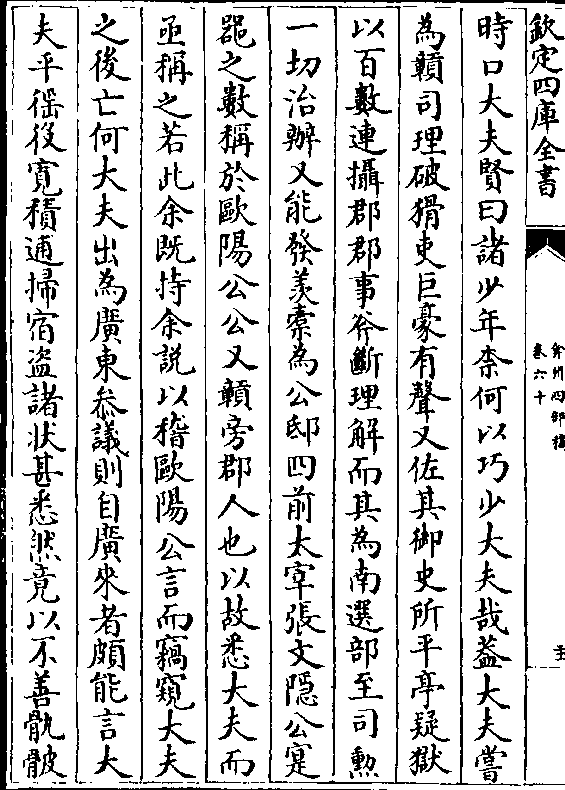 欽定四庫全書
弇州四部稿
卷六十
時口大夫賢曰諸少年柰何以巧少大夫哉葢大夫嘗
為贛司理破猾吏巨豪有聲又佐其御史所平亭疑獄
以百數連攝郡郡事斧斷理解而其為南選部至司勲
一切治辦又能發羨槖為公邸四前太宰張文隠公寔
噐之數稱於歐陽公公又贛旁郡人也以故悉大夫而
亟稱之若此余既持余說以稽歐陽公言而竊窺大夫
之後亡何大夫出為廣東叅議則自廣來者頗能言大
夫平徭役寛積逋掃宿盗諸狀甚悉然竟以不善骫骳